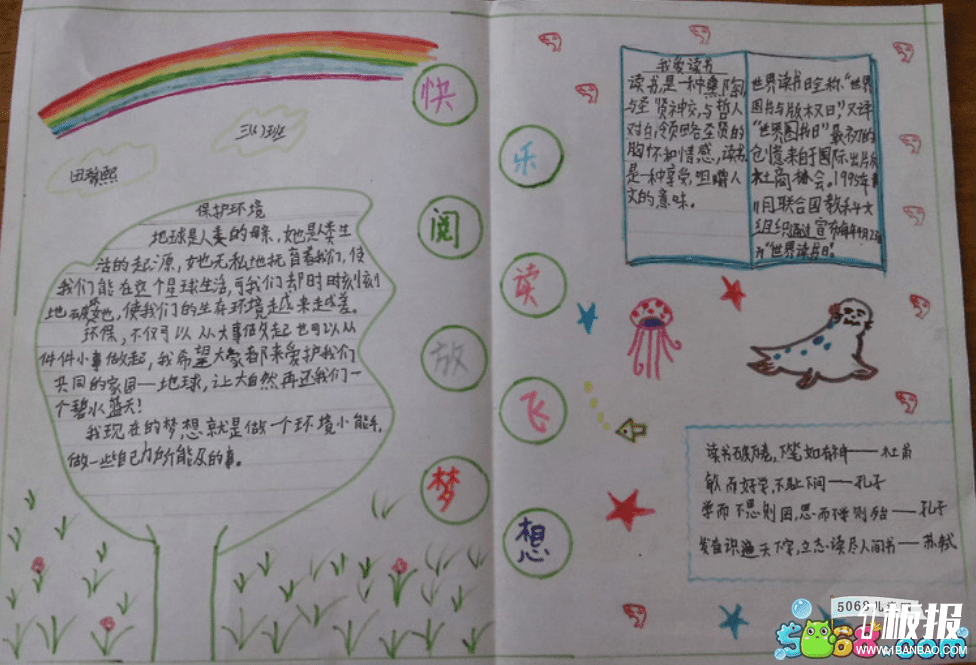 快
乐
阅
读
放
飞
梦
想
三(1)班
保护环境
地球是人类的母亲,她是人类生
活的起源,她无私地抚育着我们,使
我们能在这个星球生活,可我们却时时刻刻
地破坏她,使我们的生存环境越来越差。
环保,不仅可以从大事做起也可以从
件件小事做起,我希望大家都来爱护我们
共同的家园一地球,让大自然再还我们一
个碧水蓝天!
我现在的梦想就是做一个环境小能手,
做一些自己力所能及的事。
我爱读书
读书,是一种熏陶
与圣贤神交,与哲人
对白,领略圣贤的
胸怀和情感,读书
是一种享受,咀嚼人
文的意味。
世界读书日全称"世界
图书与版权日",又译
"世界图书日"最初的
创意来自于国际出版
社商协会。1995年
11月联合国教科文
组织通过宣布每年4月23日
为"世界读书日"。
读书破万卷,下笔如有神——杜甫
敏而好学,不耻下问——孔子
学而不思则罔,思而不学则殆——孔子
发奋识遍天下字,立志读尽人间书——苏轼
5068儿童
5068.com
板报
WWW.1BANBAO.COM